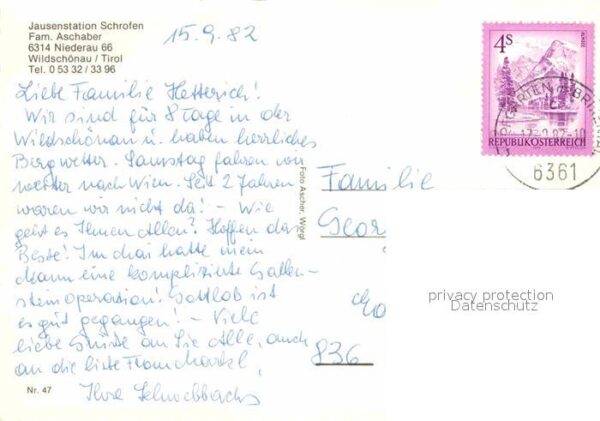 Jausenstation Schrofen
Fam. Aschaber
6314 Niederau 66
Wildschönau / Tirol
Tel. 0 53 32 / 33 96
15.9.82
4S
REPUBLIK ÖSTERREICH
6361
Liebe Familie Hetterich!
Wir sind für 8 Tage in der
Wildschönau u. haben herrliches
Bergwetter. Samstag fahren wir
weiter nach Wien. Seit 2 Jahren
waren wir nicht da! – Wie
geht es Ihnen Allen? Hoffen das
Beste! Im Mai hatte mein
Mann eine komplizierte Gallen-
steinoperation! Gottlob ist
es gut gegangen! – Viele
liebe Grüße an Sie Alle, auch
an die liebe Frau
Ihre
Foto Ascher, Wörgl
Familie
Geor
836
privacy protection
Datenschutz
Nr. 47